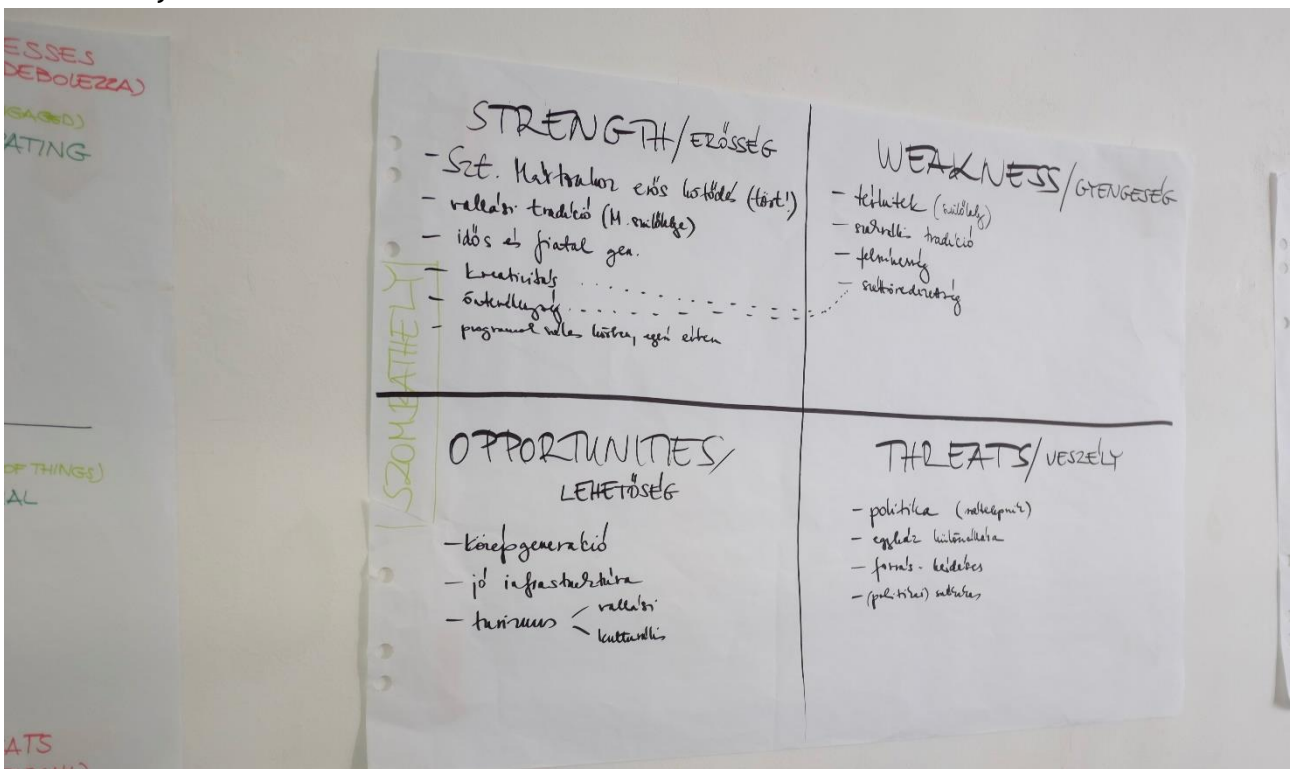 ESSES
DEBOLEZZA)
ATING
OF THINGS)
AL
ATS
SZOMBATHELY
STRENGTH/ERŐSSÉG
- Szt. Mártonhoz erős kötődés (tört!)
- vallási tradíció (M. szülőhelye)
- idős és fiatal gen.
- kreativitás
- önkéntesség
- programok széles körben, egész évben
WEAKNESS/GYENGESÉG
- (szülőhely)
- tradíció
- felszínesség
- széttöredezettség
OPPORTUNITIES/
LEHETŐSÉG
- középgeneráció
- jó infrastruktúra
- turizmus vallási
kulturális
THREATS/VESZÉLY
- politika
- egyház
- forrás - kérdéses
- (politikai)